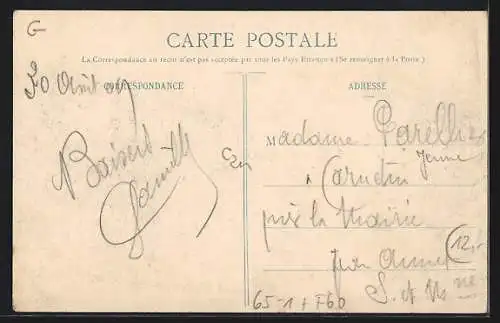 G
CARTE POSTALE
La Correspondance au recto n'est pas acceptée par tous les Pays Étrangers (Se renseigner à la Poste)
CORRESPONDANCE
30 Août
Baisers
Camille
ADRESSE
Madame
Jeune
à
près la Mairie
par
S. et M.ne
12,-
65-1 + F60